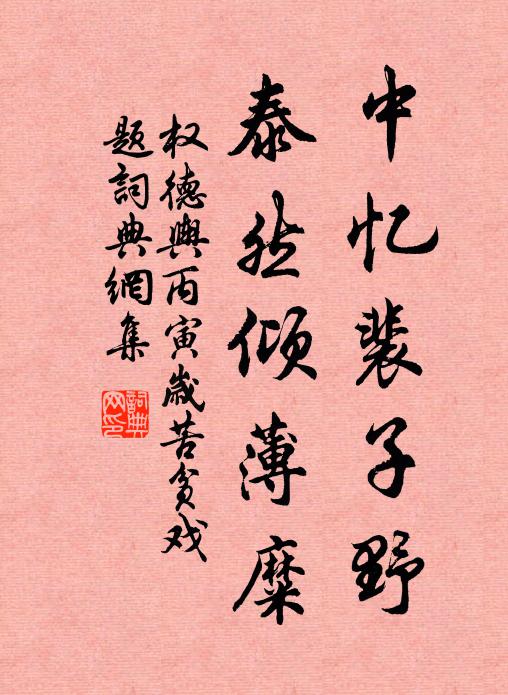 中忆裴子野
泰然倾薄糜
权德舆丙寅岁苦贫戏
题詞典網集
詞典网印